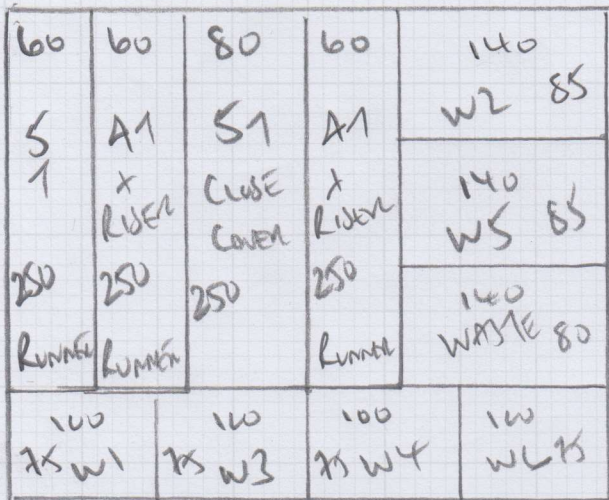 60
S
1
250
RUNNER
60
A1
X
RISER
250
RUNNER
80
S1
CLOSE
COVER
250
60
A1
X
RISER
250
RUNNER
140
W2 85
140
W5 85
140
WASTE 80
100
75 W1
100
75 W3
100
75 W4
100
W6 75